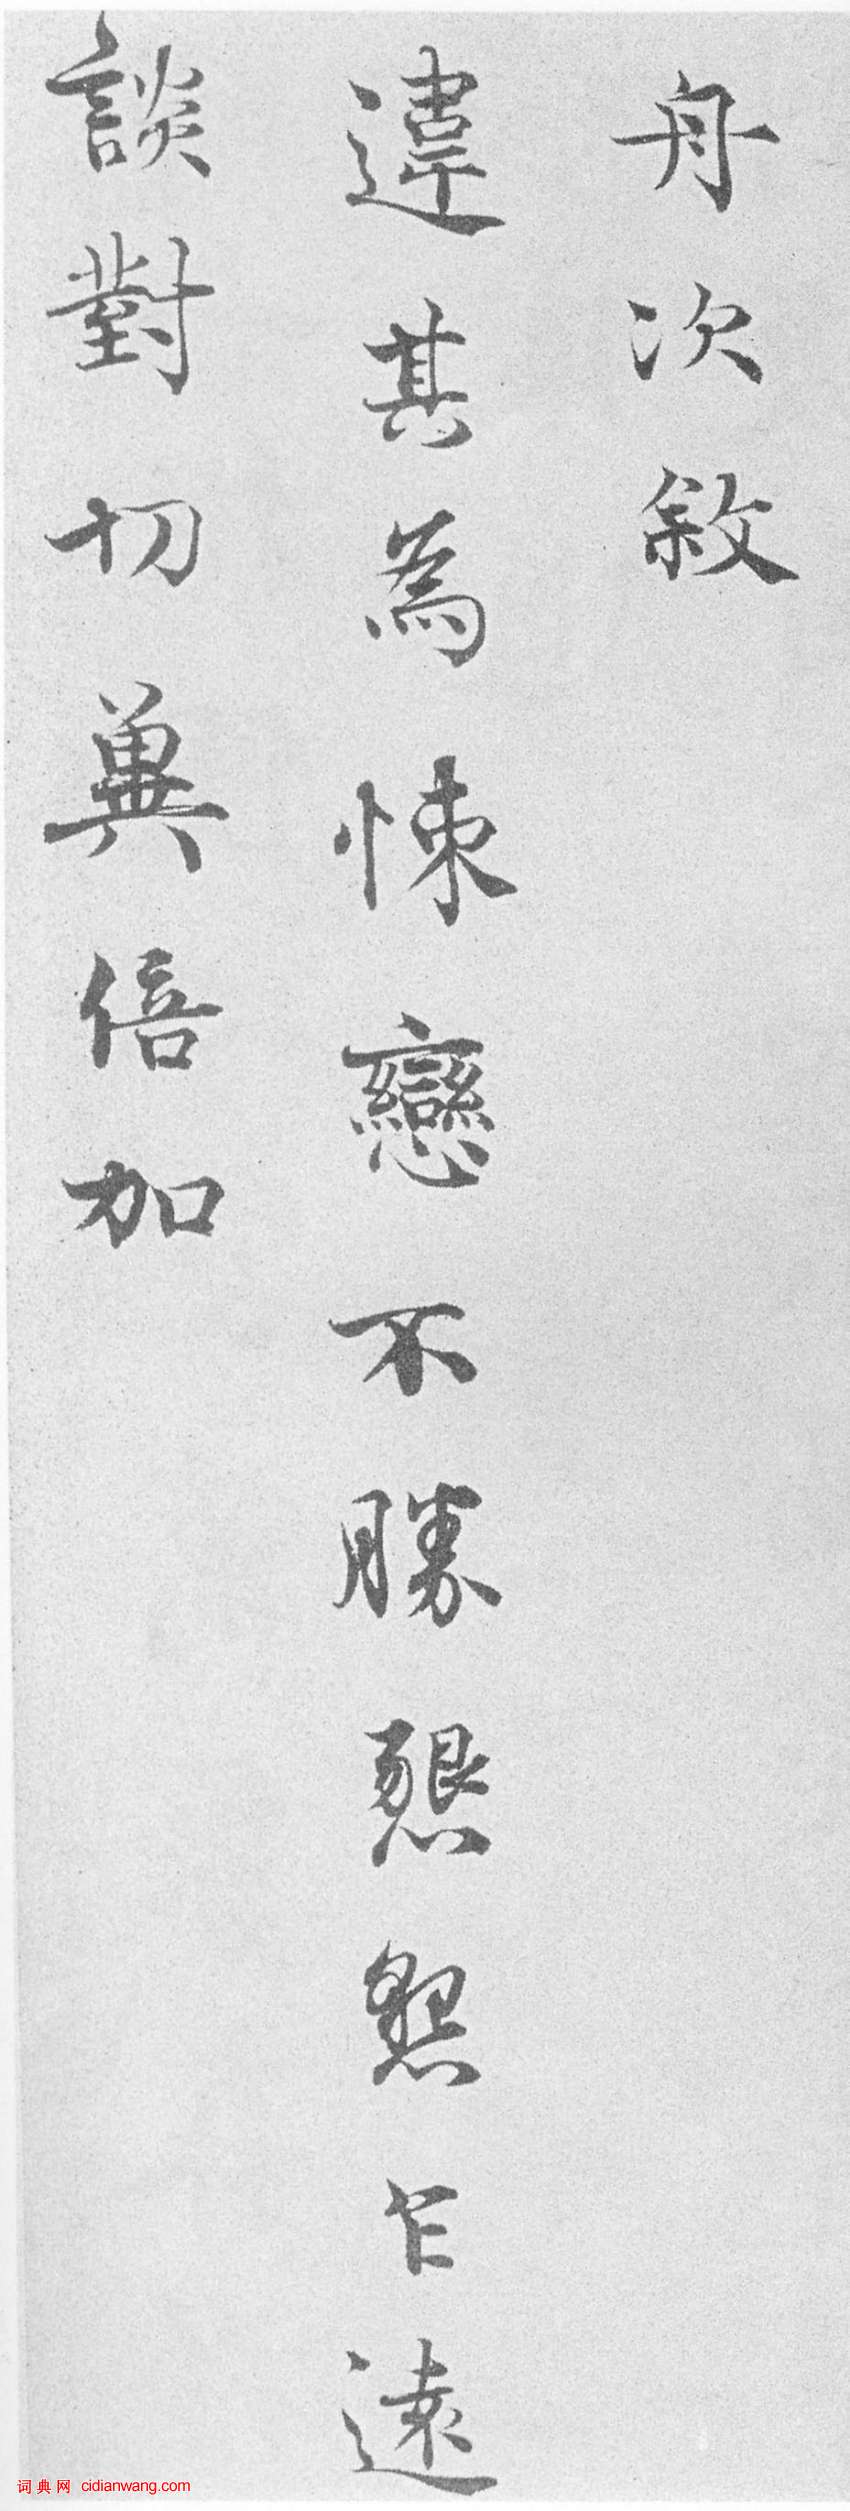 舟次敘
違其為悚戀不勝懇懇乍遠
談對切冀倍加
词典网 cidianwang.com